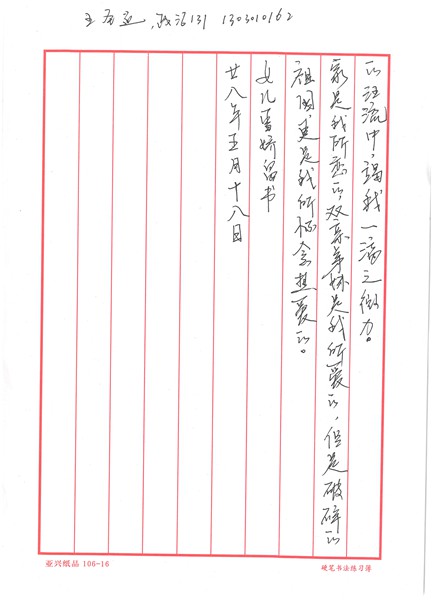 政治131 1303010162
的洪流中，竭我一滴之微力。
家是我所恋的，双亲弟妹是我所爱的，但是破碎的
祖国更是我所怀念热爱的。
女儿雪娇留书
廿八年五月十八日
亚兴纸品 106-16
硬笔书法练习簿